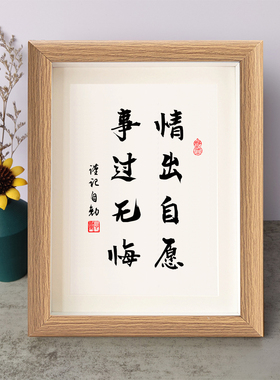 情出自愿
事过无悔
谨记自勉